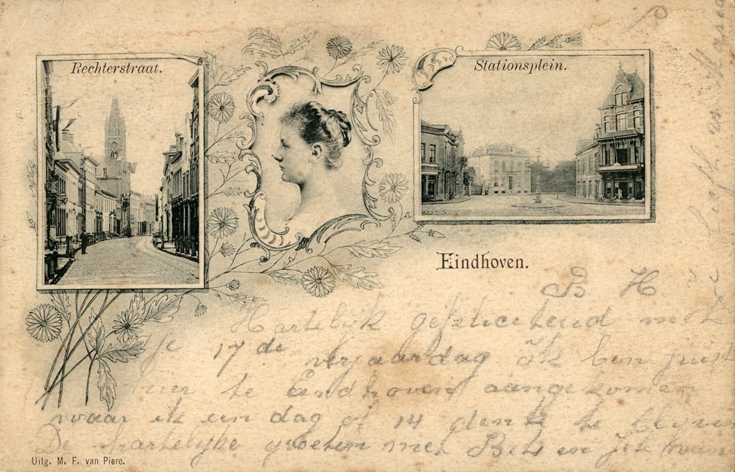 Rechterstraat.
Stationsplein.
Eindhoven.
B H
Hartelijk gefeliciteerd met
je 17de verjaardag ik ben juist
hier te Eindhoven aangekomen
waar ik een dag of 14 denk te blijven
De hartelijke groeten met Bets en
Uitg. M. F. van Piere.